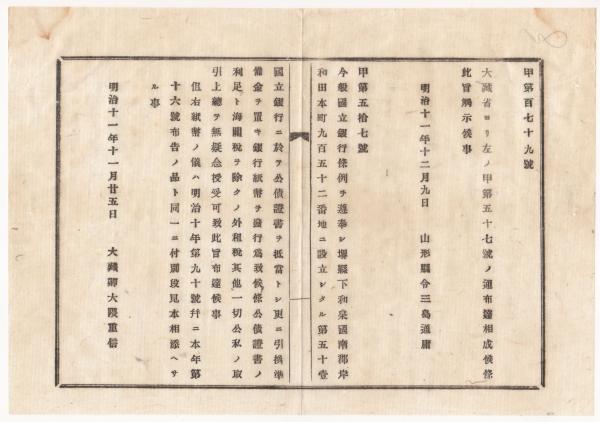 甲第百七十九號
大藏省ヨリ左ノ甲第五十七號ノ通布達相成候條
此旨觸示候事
明治十一年十二月九日　山形縣令三島通庸
甲第五拾七號
今般國立銀行條例ヲ遵奉シ堺縣下和泉國南郡岸
和田本町九百五十二番地ニ設立シタル第五十壹
國立銀行ニ於ヲ公債證書ヲ抵當トシ更ニ引換準
備金ヲ置キ銀行紙幣ヲ發行爲致候條公債證書ノ
利足ト海關稅ヲ除クノ外租稅其他一切公私ノ取
引上總ヲ無疑念授受可致此旨布達候事
但右紙幣ノ儀ハ明治十年第九十號幷ニ本年第
十六號布告ノ品ト同一ニ付別段見本相添ヘサ
ル事
明治十一年十一月廿五日　大藏卿大隈重信